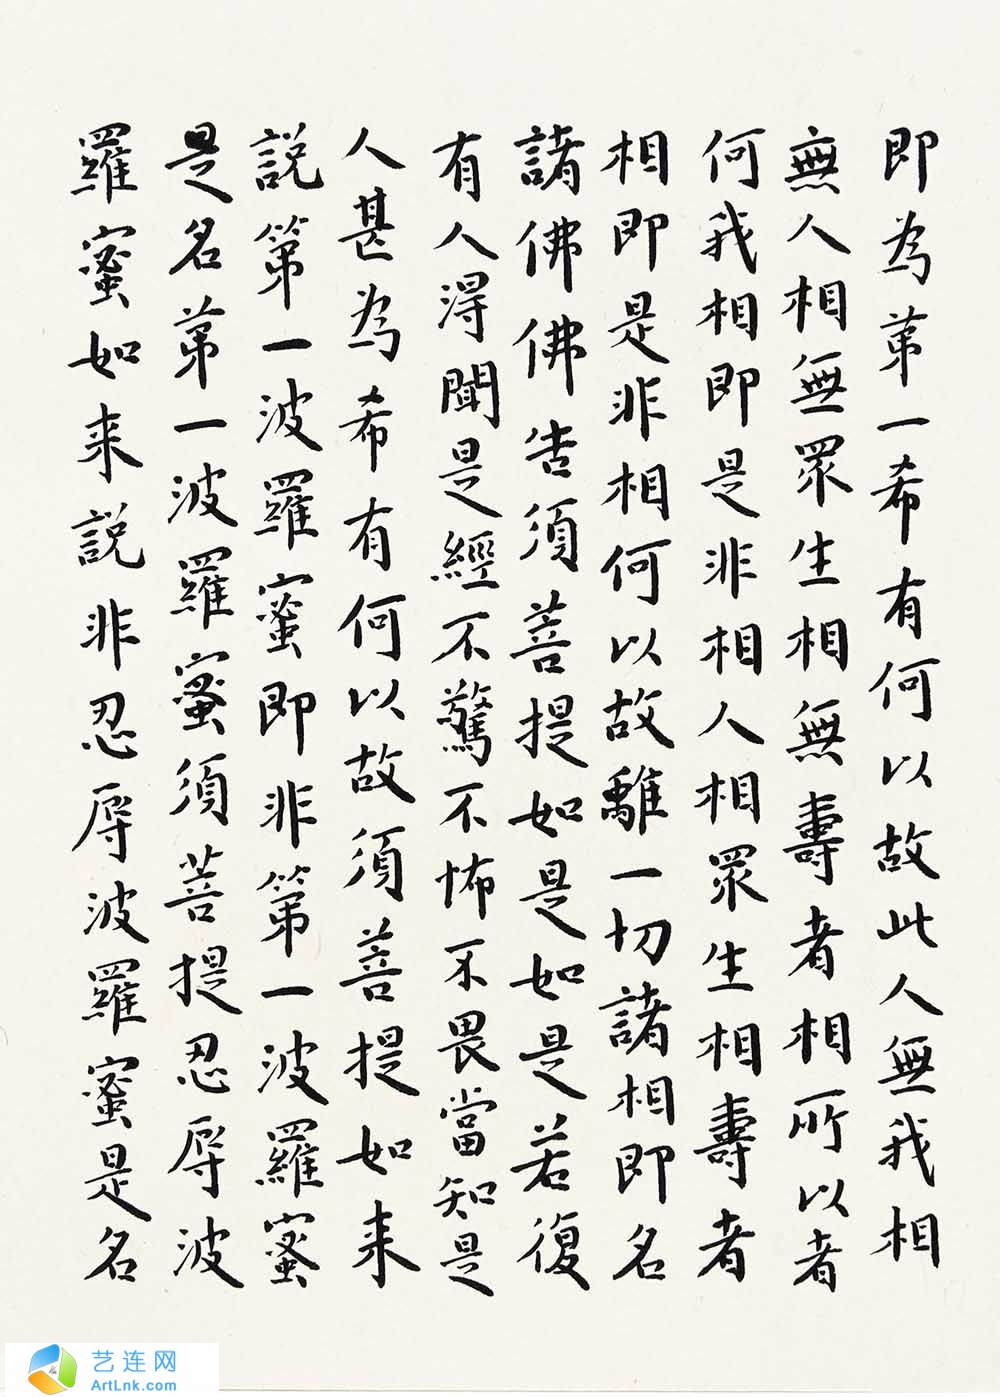 即為第一希有何以故此人無我相
無人相無眾生相無壽者相所以者
何我相即是非相人相眾生相壽者
相即是非相何以故離一切諸相即名
諸佛佛告須菩提如是如是若復
有人得聞是經不驚不怖不畏當知是
人甚為希有何以故須菩提如来
説第一波羅蜜即非第一波羅蜜
是名第一波羅蜜須菩提忍辱波
羅蜜如来説非忍辱波羅蜜是名
艺连网
ArtLnk.com